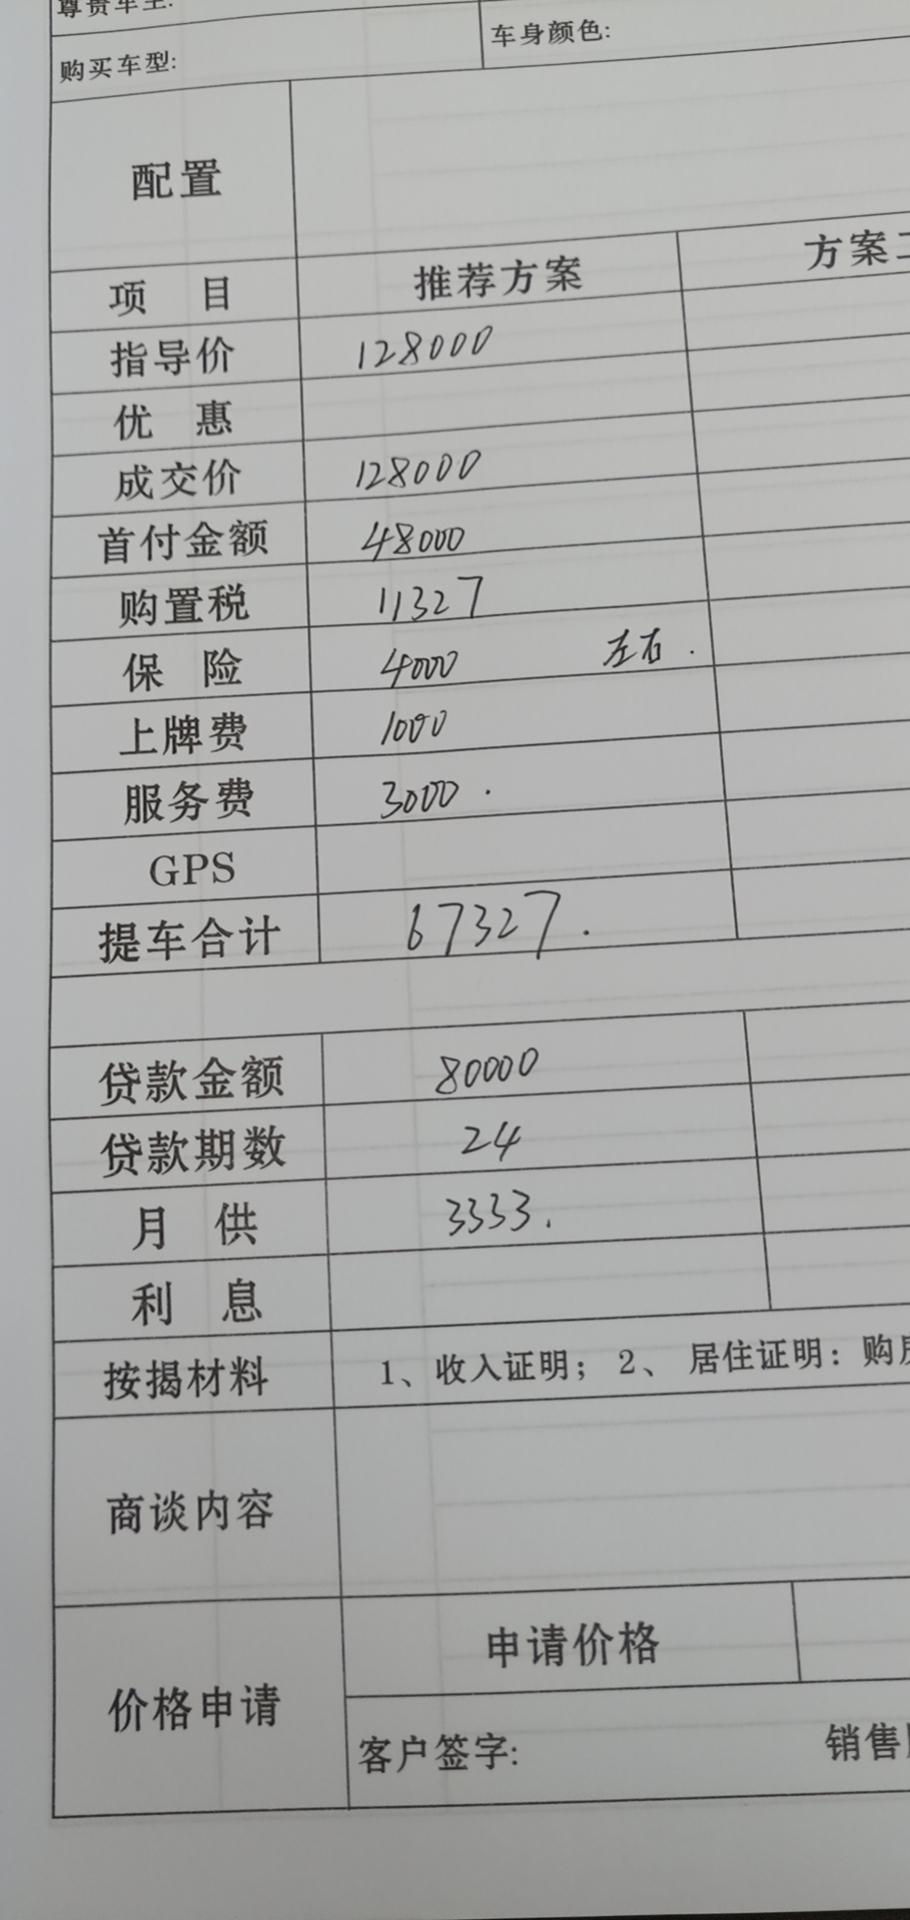 尊贵车主:
购买车型: 车身颜色:
配置
项 目 推荐方案 方案二
指导价 128000
优 惠
成交价 128000
首付金额 48000
购置税 11327
保 险 4000 左右.
上牌费 1000
服务费 3000.
GPS
提车合计 67327.
贷款金额 80000
贷款期数 24
月 供 3333.
利 息
按揭材料 1、收入证明; 2、 居住证明: 购房
商谈内容
申请价格
价格申请
客户签字: 销售